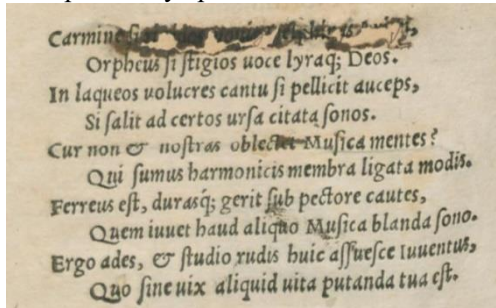 Carmine
Orpheus ſi ſtigios uoce lyraq; Deos.
In laqueos uolucres cantu ſi pellicit auceps,
Si ſalit ad certos urſa citata ſonos.
Cur non & noſtras oblectet Muſica mentes?
Qui ſumus harmonicis membra ligata modis.
Ferreus eſt, durasq́; gerit ſub pectore cautes,
Quem iuuet haud aliquo Muſica blanda ſono.
Ergo ades, & ſtudio rudis huic aſſueſce iuuentus,
Quo ſine uix aliquid uita putanda tua eſt.